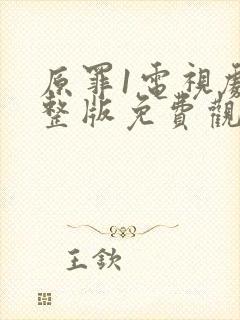 原罪1電視劇
整版免費觀
王欽